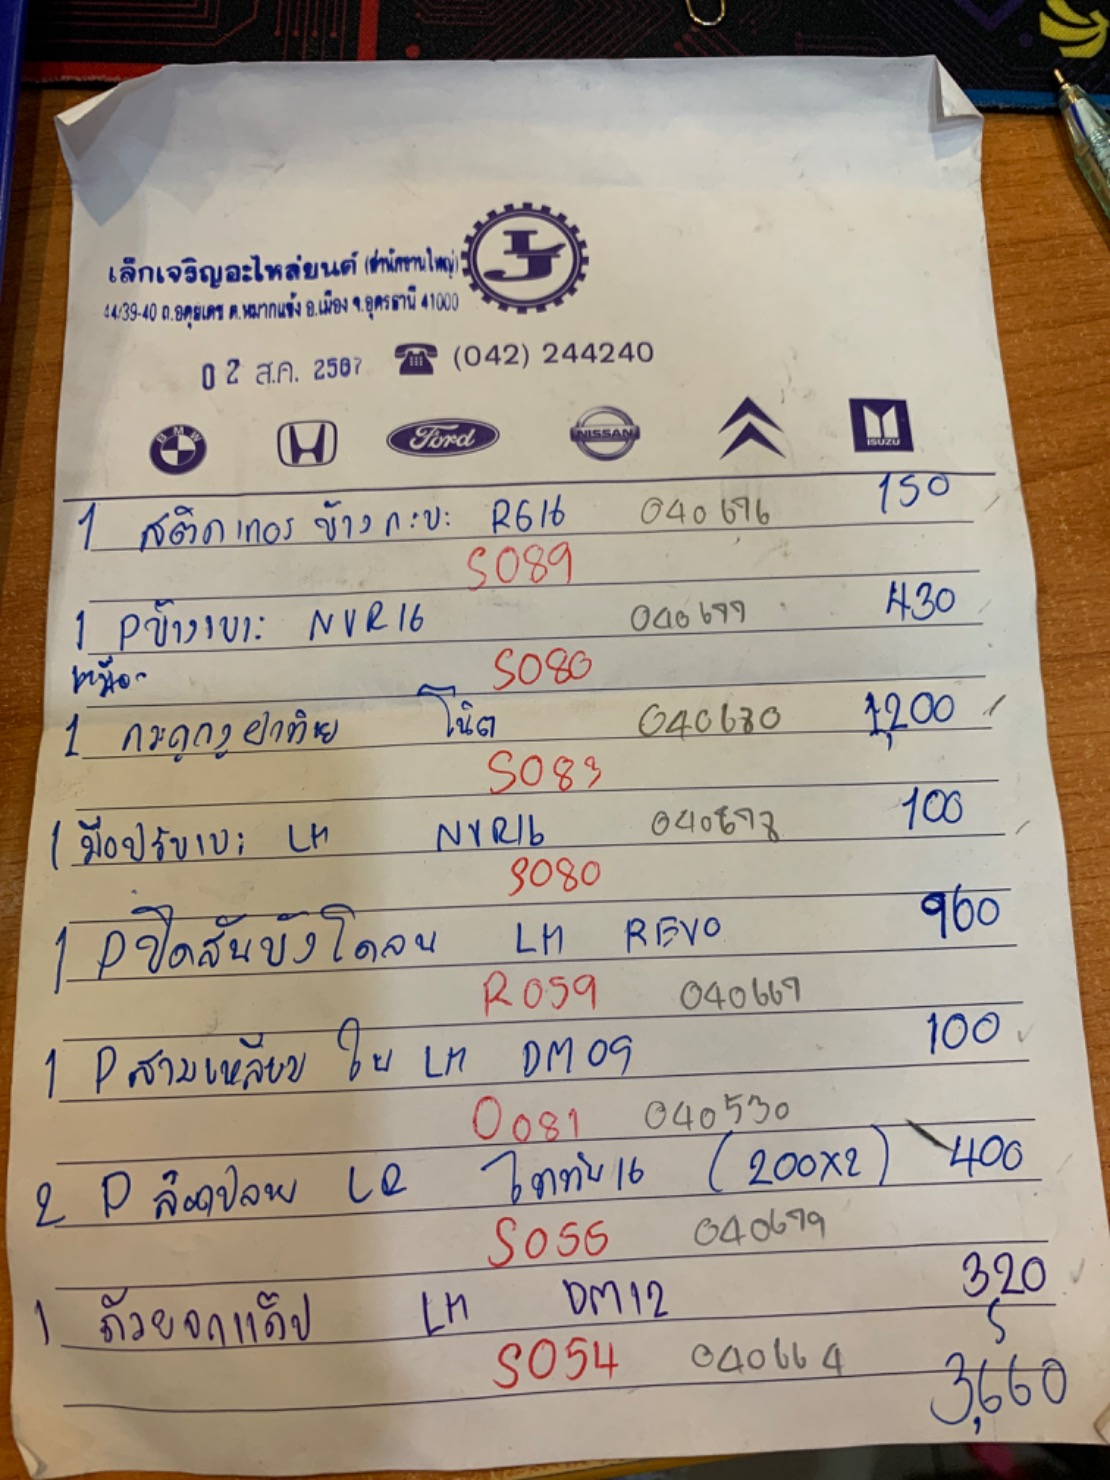 เล็กเจริญอะไหล่ยนต์ (สำนักงานใหญ่)
44/39-40 ถ.อดุลยเดช ต.หมากแข้ง อ.เมือง จ.อุดรธานี 41000
02 ส.ค. 2567 (042) 244240
BMW Ford NISSAN ISUZU
1 สติกเกอร์ ข้างกะบะ RG16 040676 150
S089
1 Pข้างเบาะ NVR16 040677 430
S080
1 โนิต 040680 1,200
S083
1 มือปรับเบาะ LH NVR16 040678 100
S080
1 Pปิดสันบังโคลน LH REVO 960
R059 040667
1 Pสามเหลี่ยม ใน LH DM09 100
O081 040530
2 P LR ไททัน16 (200x2) 400
S055 040679
1 LH DM12 320
S054 040664
3,660